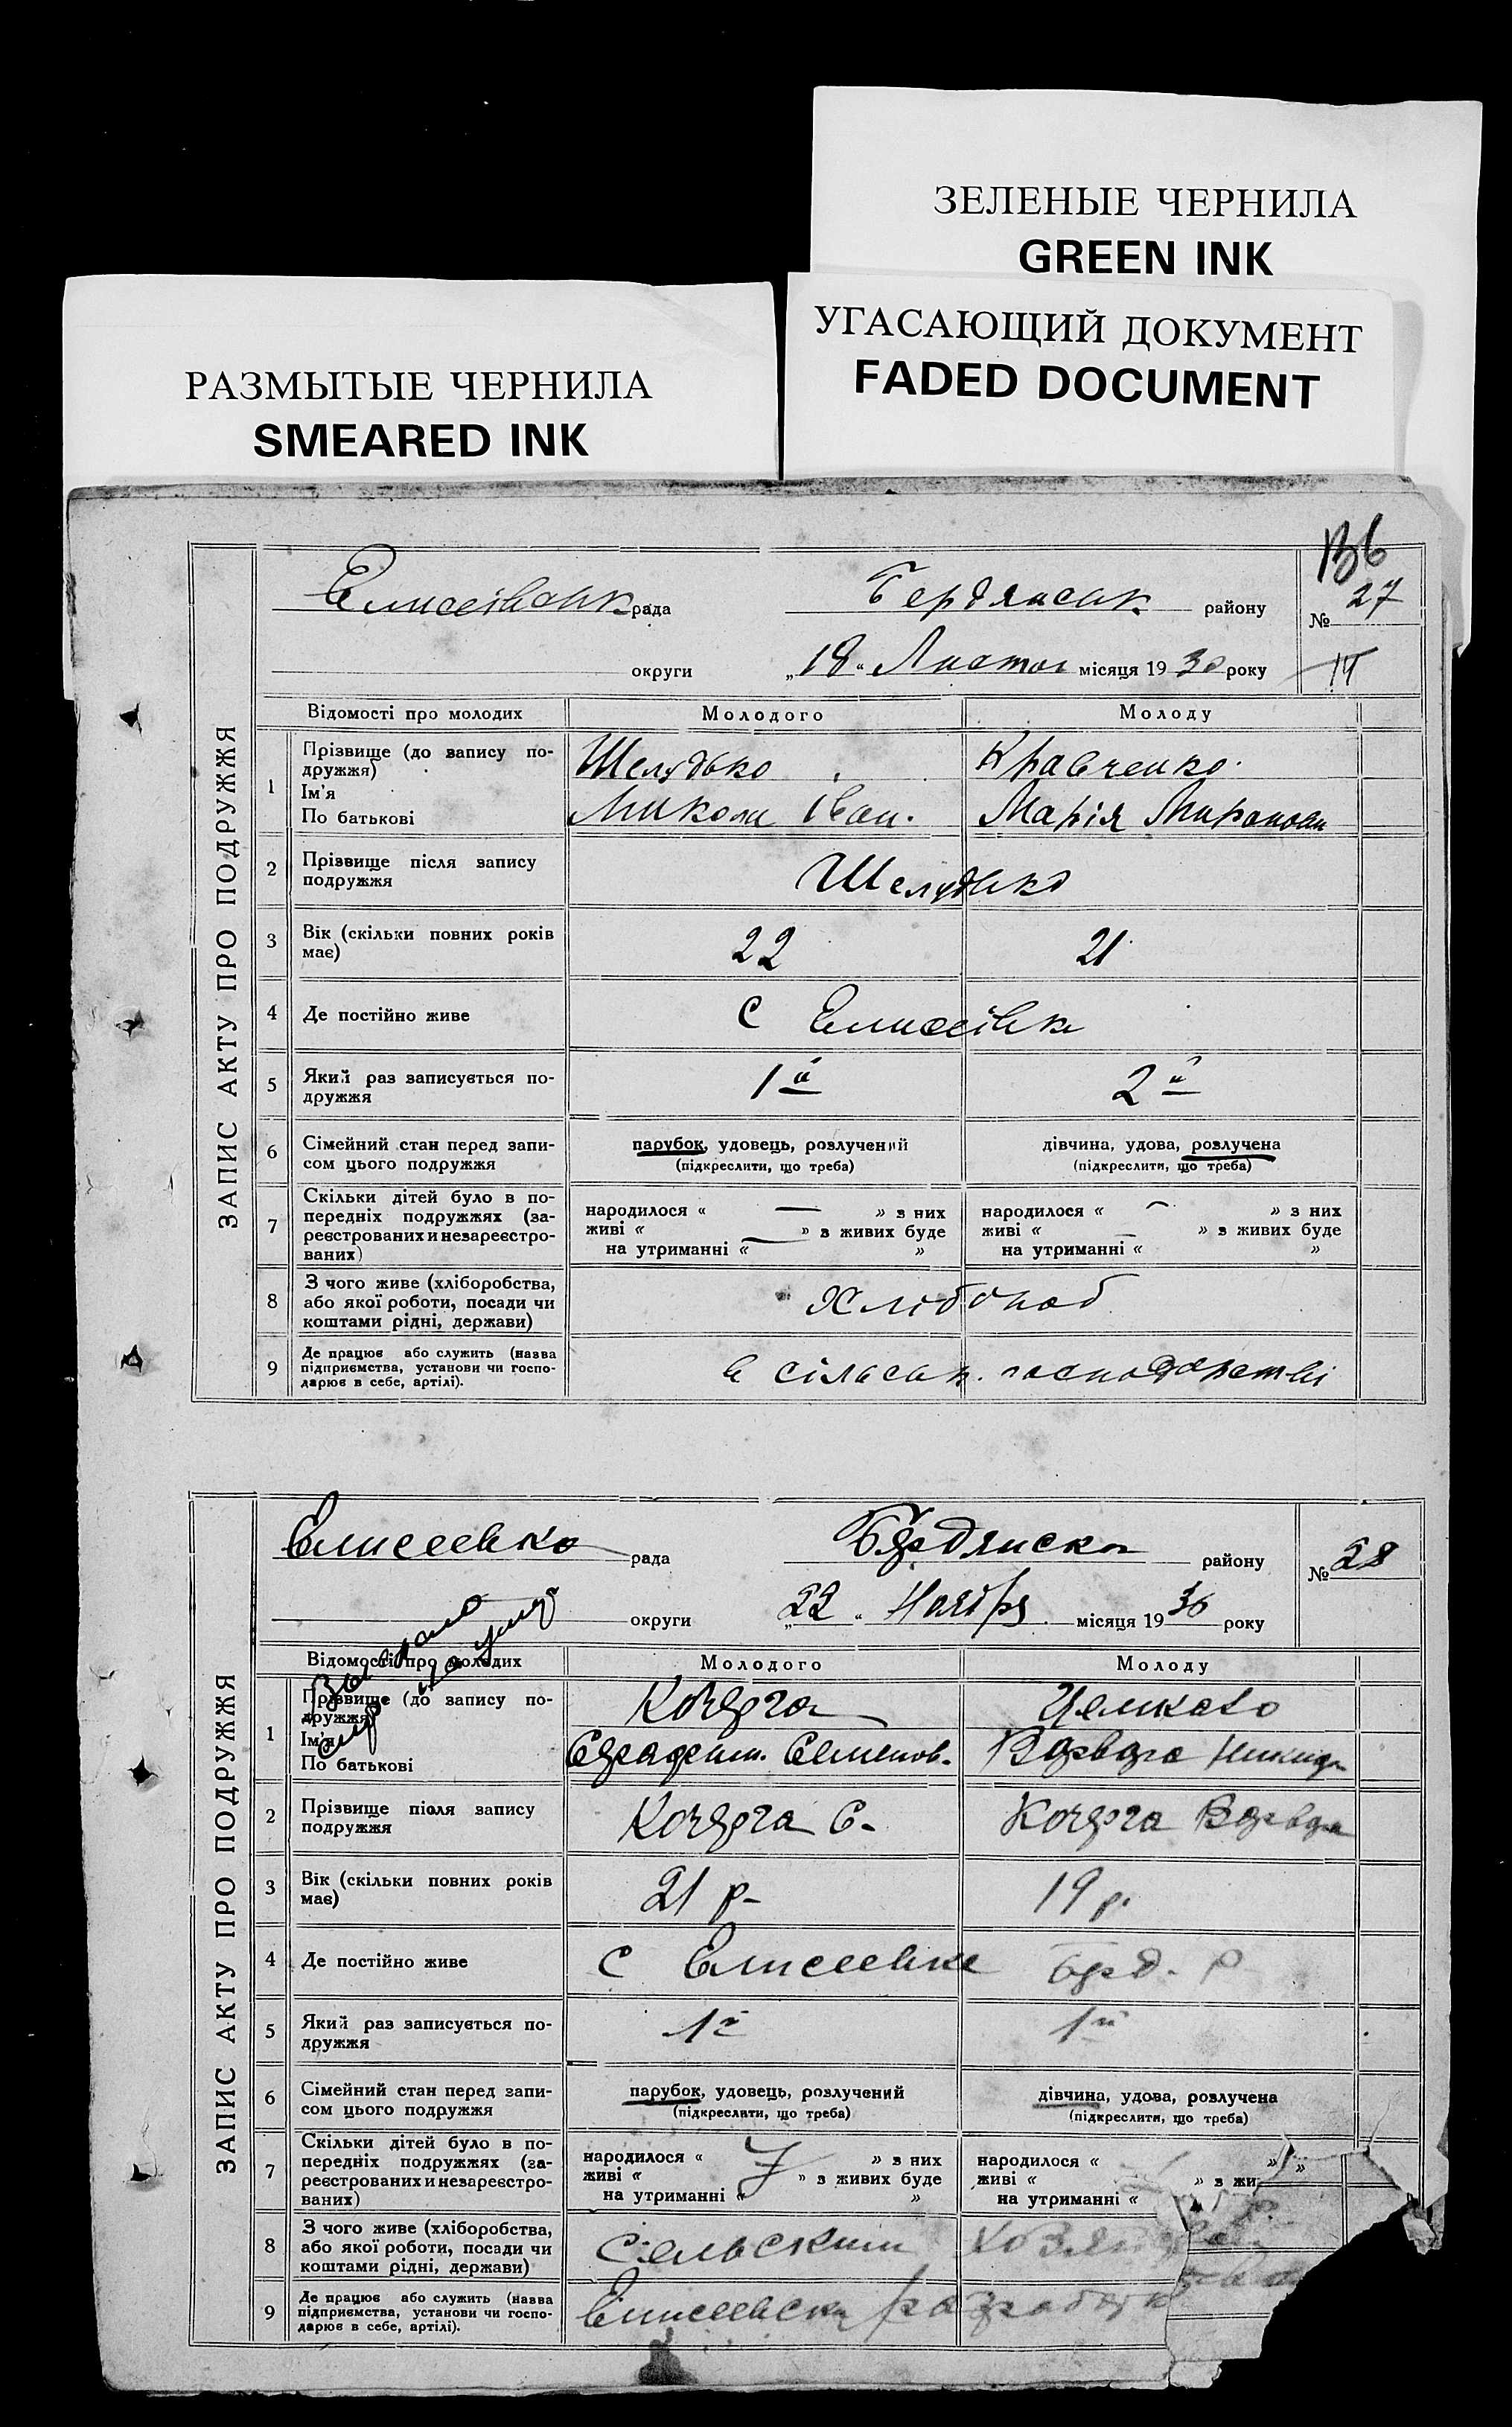 ЗЕЛЕНЫЕ ЧЕРНИЛА
GREEN INK
УГАСАЮЩИЙ ДОКУМЕНТ
FADED DOCUMENT
РАЗМЫТЫЕ ЧЕРНИЛА
SMEARED INK
ЗАПИС АКТУ ПРО ПОДРУЖЖЯ
Єлисеївськ рада Бердянськ району № 27
округи „18“ Листоп місяця 1930 року
Відомості про молодих Молодого Молоду
1 Прізвище (до запису подружжя) Шелудько Кравченко
Ім'я
По батькові Микола Іван. Марія Миронов
2 Прізвище після запису подружжя Шелудько
3 Вік (скільки повних років має) 22 21
4 Де постійно живе С Єлисеївк
5 Який раз записується подружжя 1й 2й
6 Сімейний стан перед записом цього подружжя парубок, удовець, розлучений дівчина, удова, розлучена
(підкреслити, що треба) (підкреслити, що треба)
7 Скільки дітей було в попередніх подружжях (зареєстрованих и незареєстрованих) народилося « — » з них народилося « — » з них
живі « — » з живих буде живі « — » з живих буде
на утриманні « » на утриманні « »
8 З чого живе (хліборобства, або якої роботи, посади чи коштами рідні, держави) Хлібороб
9 Де працює або служить (назва підприємства, установи чи господарює в себе, артілі). в сільськ. господарстві
ЗАПИС АКТУ ПРО ПОДРУЖЖЯ
Елисеевка рада Бердянска району № 28
округи „22“ Ноября місяця 1930 року
Відомості про молодих Молодого Молоду
1 Прізвище (до запису подружжя) Кочерга
Ім'я
По батькові Семенов. Варвара
2 Прізвище після запису подружжя Кочерга С- Кочерга Варвара
3 Вік (скільки повних років має) 21 р- 19 р.
4 Де постійно живе С Елисеевке Берд. р
5 Який раз записується подружжя 1й 1й
6 Сімейний стан перед записом цього подружжя парубок, удовець, розлучений дівчина, удова, розлучена
(підкреслити, що треба) (підкреслити, що треба)
7 Скільки дітей було в попередніх подружжях (зареєстрованих и незареєстрованих) народилося « » з них народилося « »
живі « » з живих буде живі « » з жи
на утриманні « » на утриманні «
8 З чого живе (хліборобства, або якої роботи, посади чи коштами рідні, держави) Сельским
9 Де працює або служить (назва підприємства, установи чи господарює в себе, артілі). Елисеевск